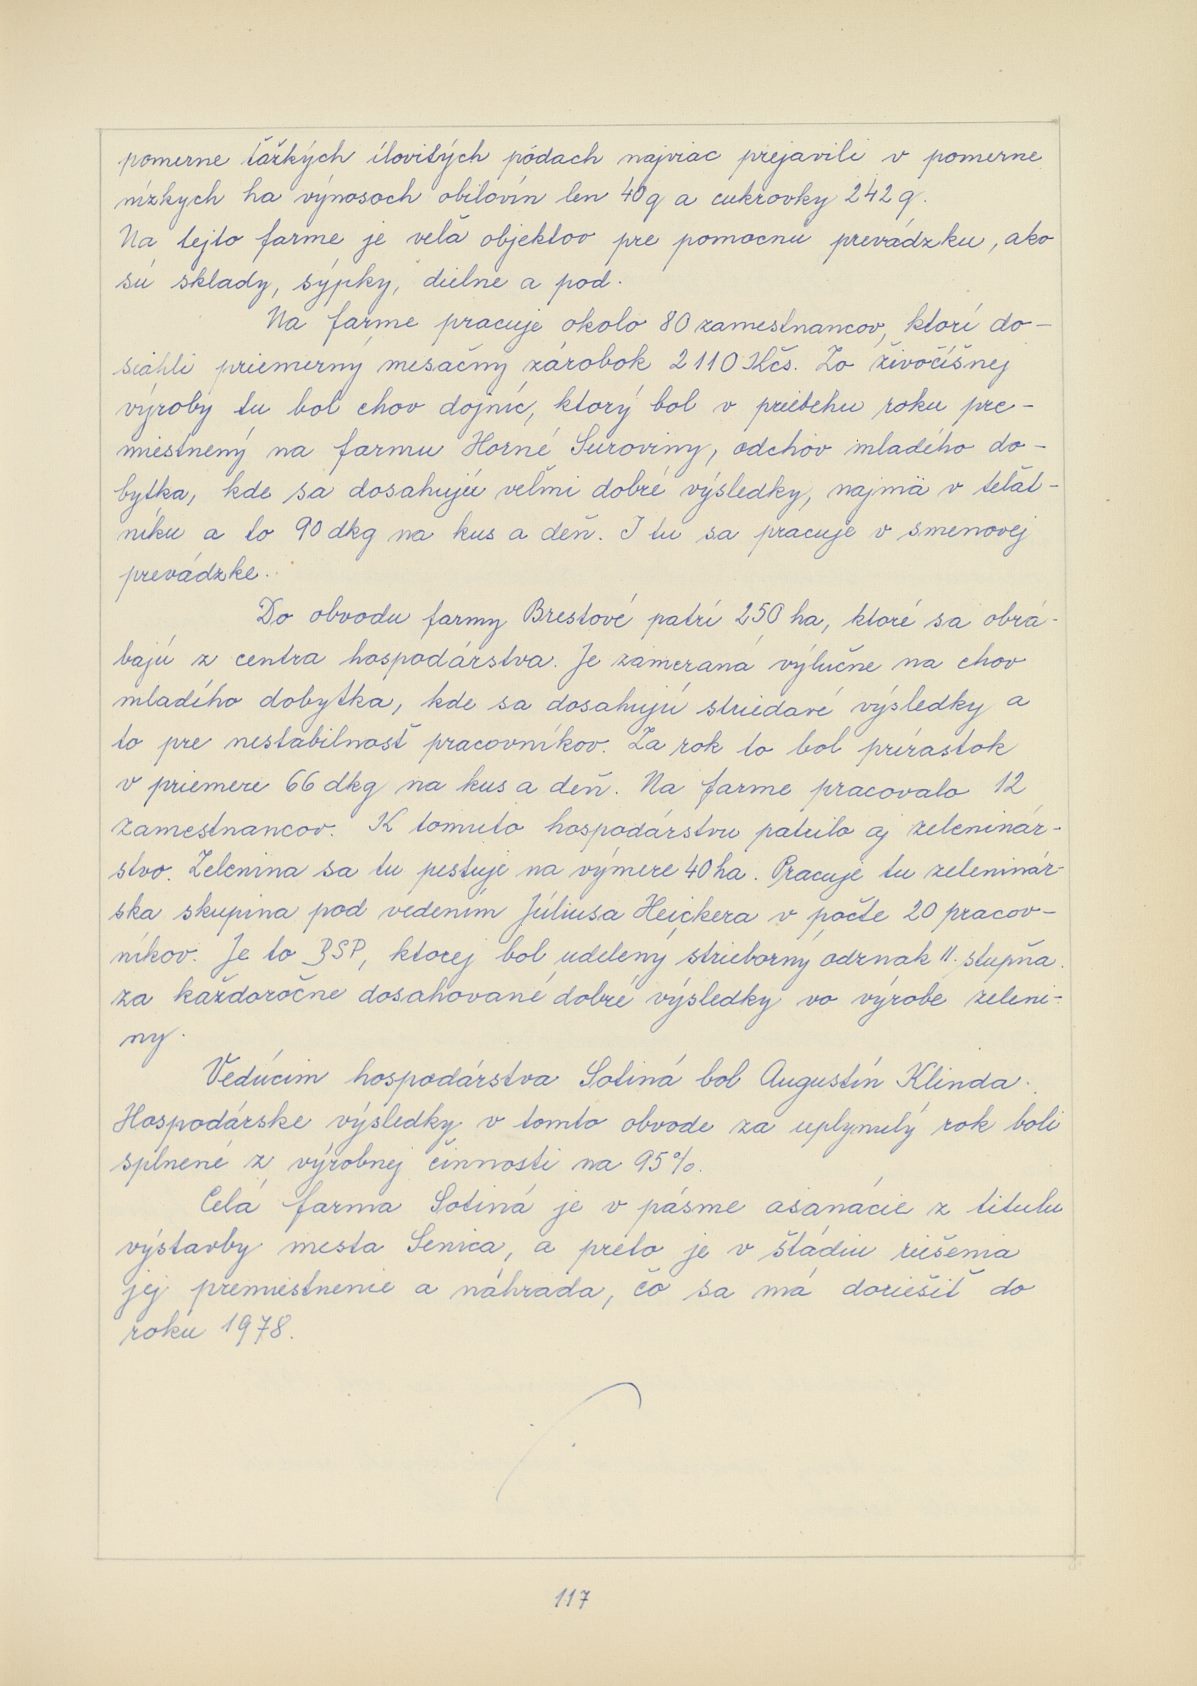 pomerne ťažkých ílovitých pôdach najviac prejavili v pomerne
nízkych ha výnosoch obilovín len 40 q a cukrovky 242 q.
Na tejto farme je veľa objektov pre pomocnú prevádzku, ako
sú sklady, sýpky, dielne a pod.
Na farme pracuje okolo 80 zamestnancov, ktorí do-
siahli priemerný mesačný zárobok 2110 Kčs. Zo živočíšnej
výroby tu bol chov dojníc, ktorý bol v priebehu roku pre-
miestnený na farmu Horné Suroviny, odchov mladého do-
bytka, kde sa dosahujú veľmi dobré výsledky, najmä v teľat-
níku a to 90 dkg na kus a deň. I tu sa pracuje v smenovej
prevádzke.
Do obvodu farmy Brestové patrí 250 ha, ktoré sa obrá-
bajú z centra hospodárstva. Je zameraná výlučne na chov
mladého dobytka, kde sa dosahujú striedavé výsledky a
to pre nestabilnosť pracovníkov. Za rok to bol prírastok
v priemere 66 dkg na kus a deň. Na farme pracovalo 12
zamestnancov. K tomuto hospodárstvu patrilo aj zeleninár-
stvo. Zelenina sa tu pestuje na výmere 40 ha. Pracuje tu zeleninár-
ska skupina pod vedením Júliusa Heickera v počte 20 pracov-
níkov. Je to BSP, ktorej bol udelený strieborný odznak II. stupňa
za každoročne dosahované dobré výsledky vo výrobe zeleni-
ny.
Vedúcim hospodárstva Sotiná bol Augustín Klinda.
Hospodárske výsledky v tomto obvode za uplynulý rok boli
splnené z výrobnej činnosti na 95%.
Celá farma Sotiná je v pásme asanácie z titulu
výstavby mesta Senica, a preto je v štádiu riešenia
jej premiestnenie a náhrada, čo sa má doriešiť do
roku 1978.
117